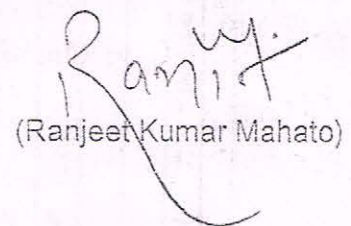 Ranjit
(Ranjeet Kumar Mahato)